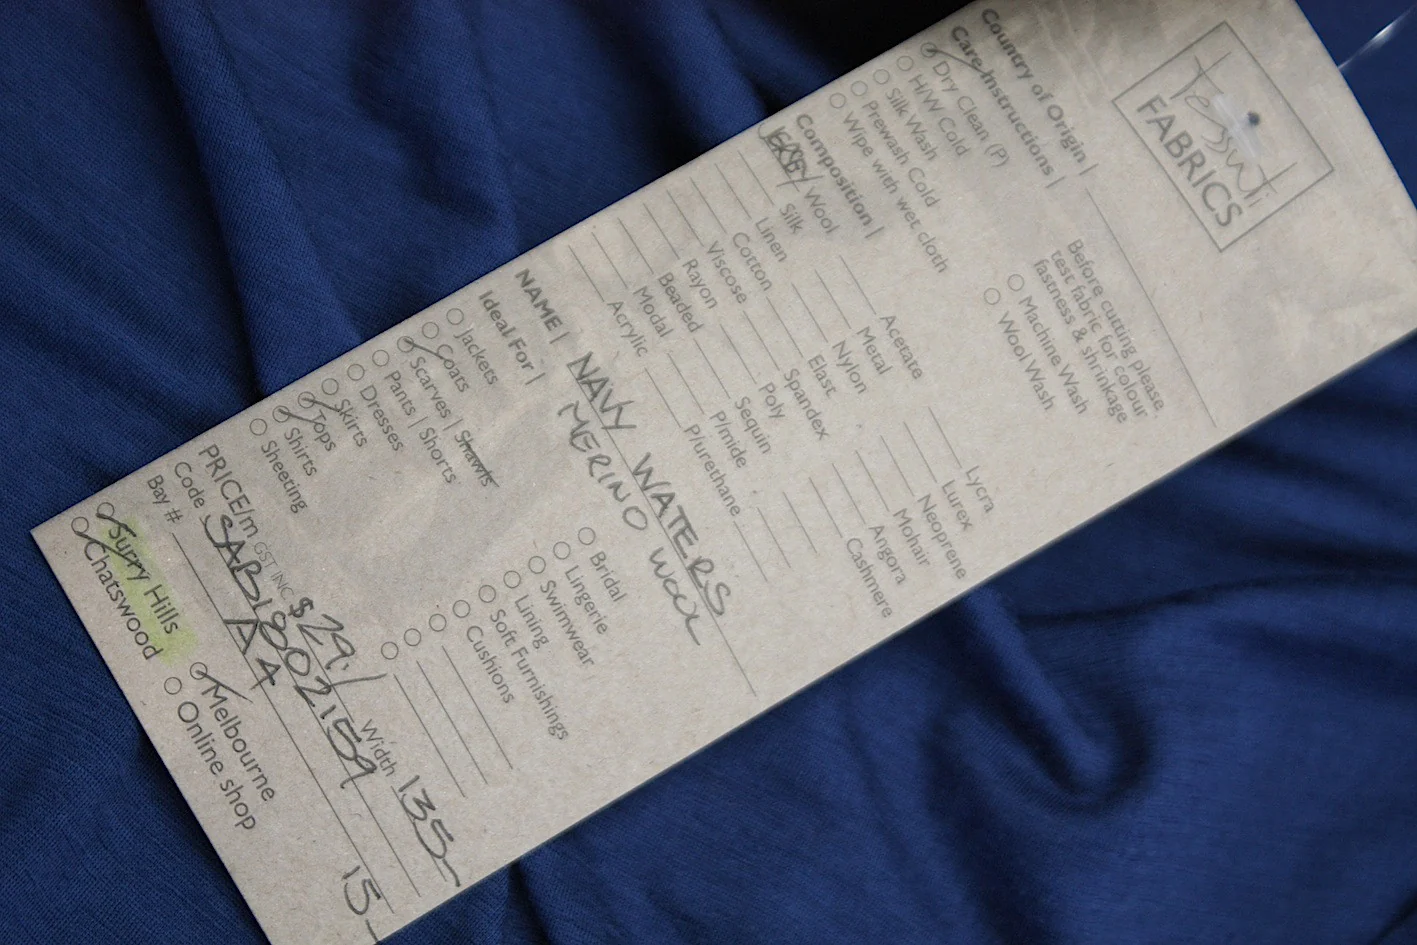 Tessuti
FABRICS
Country of Origin |
Care Instructions |
Dry Clean (P)
H/W Cold
Silk Wash
Prewash Cold
Wipe with wet cloth
Before cutting please
test fabric for colour
fastness & shrinkage
Machine Wash
Wool Wash
Composition |
JERSEY Wool
Silk
Linen
Cotton
Viscose
Rayon
Beaded
Modal
Acrylic
Acetate
Metal
Nylon
Elast
Spandex
Poly
Sequin
P/mide
P/urethane
Lycra
Lurex
Neoprene
Mohair
Angora
Cashmere
NAME | NAVY WATERS
MERINO WOOL
Ideal For |
Jackets
Coats
Scarves | Shawls
Pants | Shorts
Dresses
Skirts
Tops
Shirts
Sheeting
Bridal
Lingerie
Swimwear
Lining
Soft Furnishings
Cushions
PRICE/m GST INC $29. Width 135
Code SAB18002159
Bay # AA 15
Surry Hills
Chatswood
Melbourne
Online shop